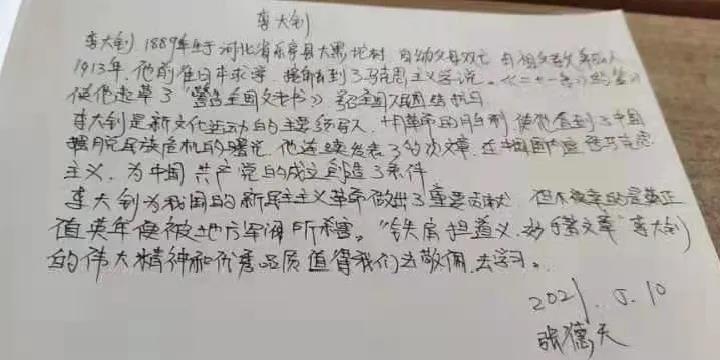 李大钊
李大钊 1889年生于河北省乐亭县大黑坨村 自幼父母双亡 由祖父教养成人
1913年,他前往日本求学,接触到了马克思主义学说。《二十一条》的签订
使他起草了“警告全国父老书》号召全国人民团结抗日
李大钊是新文化运动的主要领导人,十月革命的胜利 使他看到了中国
摆脱民族危机的曙光,他连续发表了多次文章,在中国国内宣传马克思
主义,为中国共产党的成立创造了条件
李大钊为我国的新民主主义革命做出了重要贡献 但不幸的是其正
值英年便被地方军阀所杀害。“铁肩担道义,妙手著文章”李大钊
的伟大精神和优秀品质值得我们去敬佩,去学习。
2021.5.10
张德天